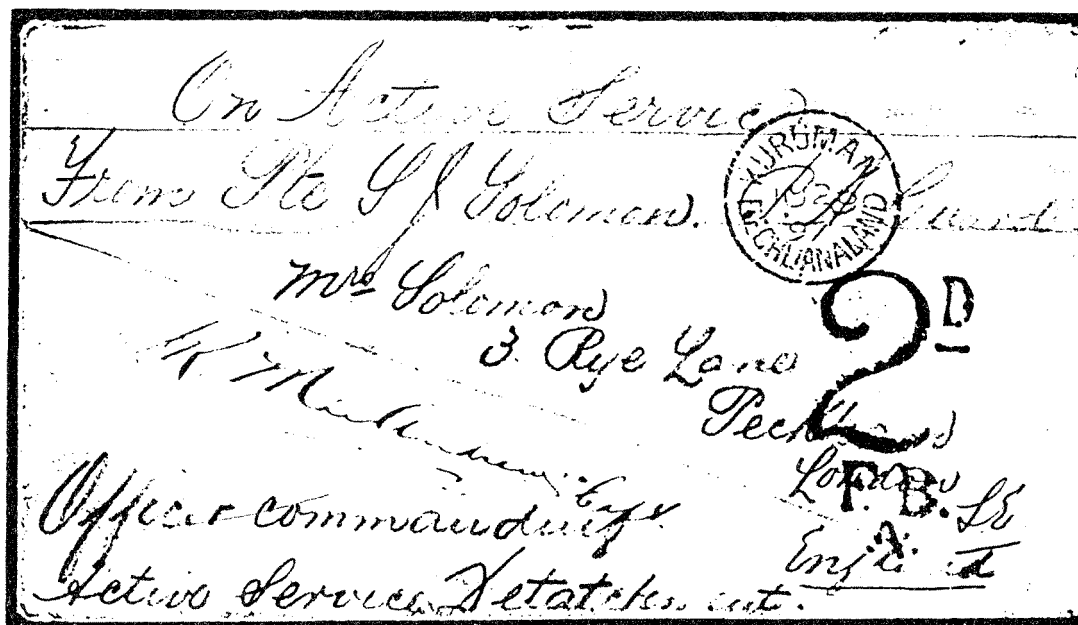 On Active Service
From Pte S J Solomon. Guard
KURUMAN
BECHUANALAND
Mrs Solomon
3 Rye Lane
Peckham
London
SE
England
2D
F.B.
Officer commanding
Active Service Detatchment.